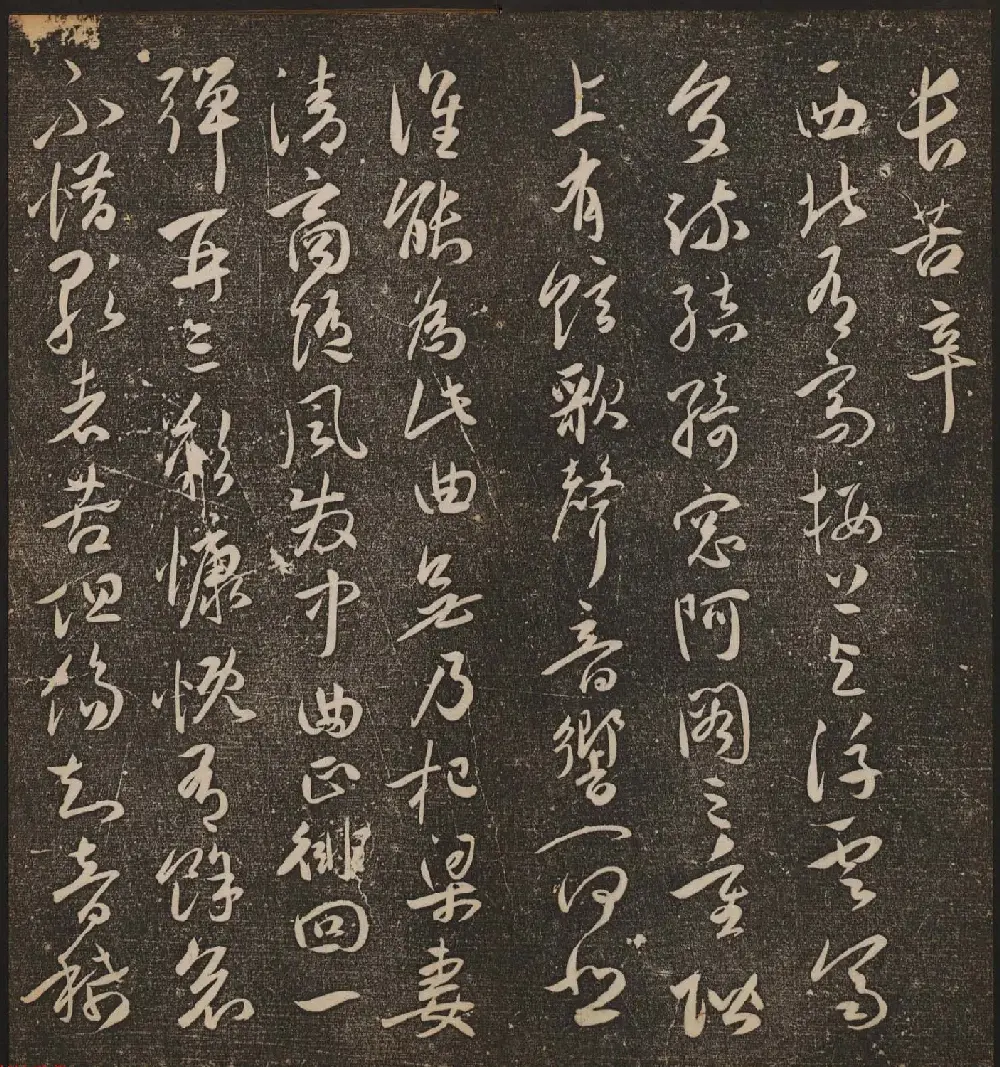 長苦辛
西北有高樓上與浮雲齊
交疏結綺窓阿閣三重階
上有絃歌聲音響一何悲
誰能為此曲無乃杞梁妻
清商隨風發中曲正徘回一
彈再三歎慷慨有餘哀
不惜歌者苦但傷知音稀